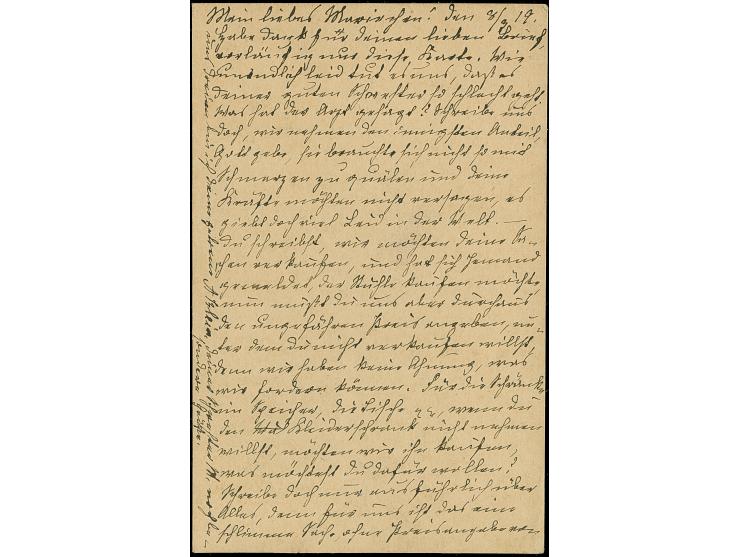 Mein liebes Mariechen! den 8/9 19.
Habe Dank für deinen lieben Brief,
vorläufig nur diese Karte. Wie
unendlich leid tut es uns, daß es
deiner guten Schwester so schlecht geht.
Was hat der Arzt gesagt? Schreibe uns
doch, wir nehmen den innigsten Anteil,
Gott gebe, sie brauchte sich nicht so mit
Schmerzen zu quälen und deine
Kräfte möchten nicht versagen, es
giebt doch viel Leid in der Welt. —
Du schreibst, wir möchten deine Sa-
chen verkaufen, und hat sich Jemand
gemeldet, der Stühle kaufen möchte,
nun mußt du uns aber durchaus
den ungefähren Preis angeben, un-
ter dem du nicht verkaufen willst,
denn wir haben keine Ahnung, was
wir fordern können. Für die Schränke
im Speicher, die Tische etc, wenn du
den Kleiderschrank nicht nehmen
willst, möchten wir ihn kaufen,
was möchtest du dafür wollen?
Schreibe doch nur ausführlich über
Alles, denn für uns ist das eine
schlimme Sach. ohne Preisangabe